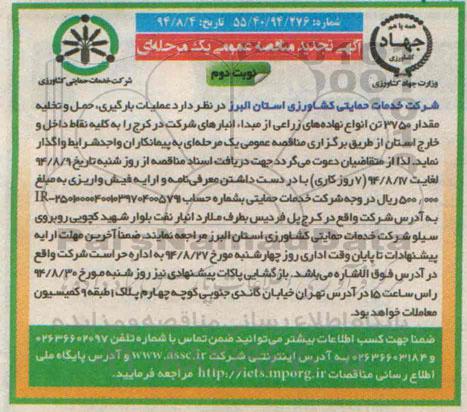 شماره: ۵۵/۴۰/۹۴/۲۷۶ تاریخ: ۹۴/۸/۴
آگهی تجدید مناقصه عمومی یک مرحله‌ای
نوبت دوم
همه با هم
جهاد
کشاورزی
وزارت جهاد کشاورزی
شرکت خدمات حمایتی کشاورزی
شرکت خدمات حمایتی کشاورزی استان البرز در نظر دارد عملیات بارگیری، حمل و تخلیه
مقدار ۳۷۵۰ تن انواع نهاده‌های زراعی از مبدا، انبارهای شرکت در کرج را به کلیه نقاط داخل و
خارج استان از طریق برگزاری مناقصه عمومی یک مرحله‌ای به پیمانکاران واجدشرایط واگذار
نماید. لذا از متقاضیان دعوت می‌گردد جهت دریافت اسناد مناقصه از روز شنبه تاریخ ۹۴/۸/۹
لغایت ۹۴/۸/۱۷ (۷ روز کاری) با در دست داشتن معرفی‌نامه و ارایه فیش واریزی به مبلغ
۵۰۰/۰۰۰ ریال در وجه شرکت خدمات حمایتی بشماره حساب
به آدرس شرکت واقع در کرج پل فردیس بطرف ملارد انبار نفت بلوار شهید کجویی روبروی
سیلو شرکت خدمات حمایتی کشاورزی استان البرز مراجعه نمایند. ضمناً آخرین مهلت ارایه
پیشنهادات تا پایان وقت اداری روز چهارشنبه مورخ ۹۴/۸/۲۷ به اداره حراست شرکت واقع
در آدرس فوق الاشاره می‌باشد. بازگشایی پاکات پیشنهادی نیز روز شنبه مورخ ۹۴/۸/۳۰
راس ساعت ۱۵ در آدرس تهران خیابان گاندی جنوبی کوچه چهارم پلاک ۱ طبقه ۹ کمیسیون
معاملات خواهد بود.
ضمنا جهت کسب اطلاعات بیشتر می‌توانید ضمن تماس با شماره تلفن ۰۲۶۳۶۶۰۲۰۹۷
و ۰۲۶۳۶۶۰۳۱۸۴ به آدرس اینترنتی شرکت www.assc.ir و آدرس پایگاه ملی
اطلاع رسانی مناقصات http://iets.mporg.ir مراجعه فرمایید.